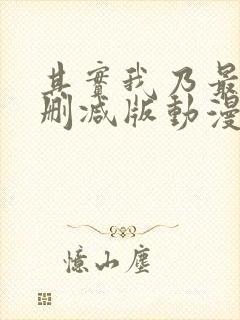 其實我乃最
刪减版動漫
憶山塵